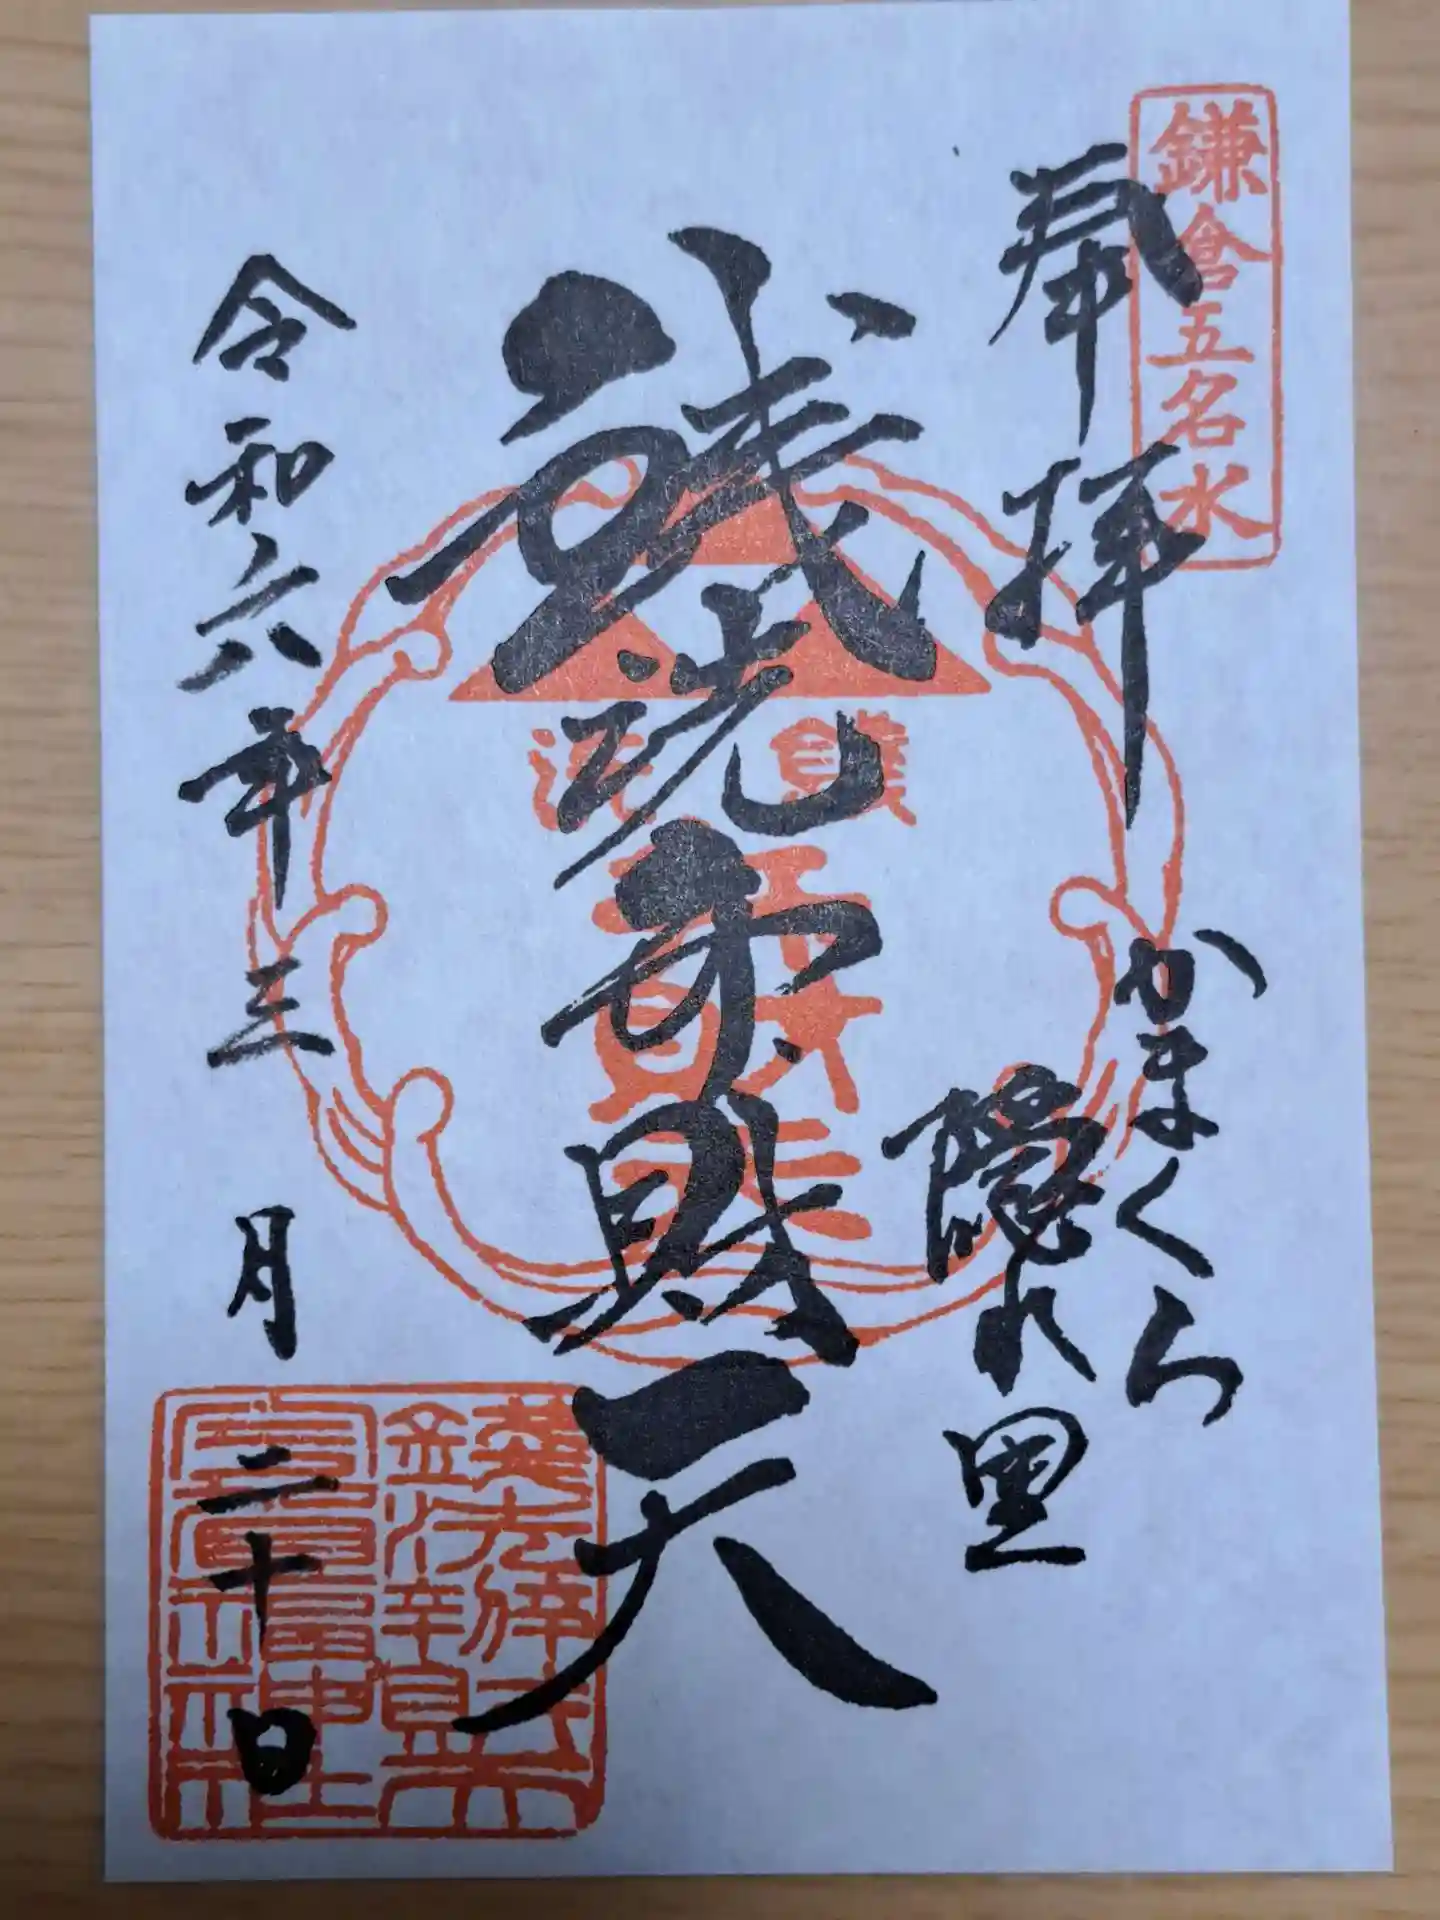 鎌倉五名水
奉拝
かまくら
隠れ里
銭洗弁財天
銭洗
弁天
令和六年三月二十日